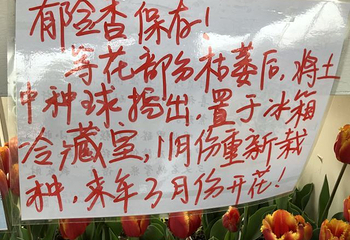 郁金香保存!
等花部分枯萎后,将土
中种球掏出,置于冰箱
冷藏室,11月份重新栽
种,来年3月份开花!